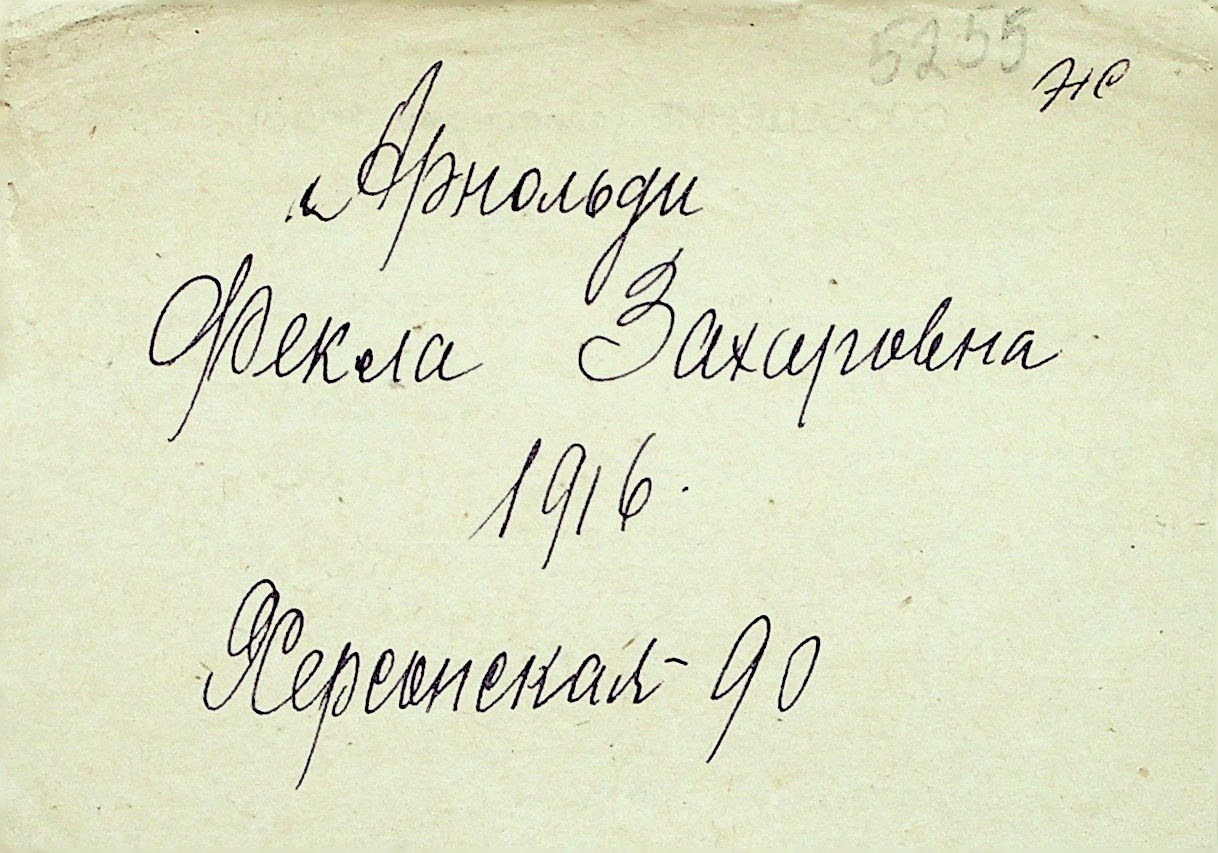 5255 ЖС
Арнольди
Фекла Захаровна
1916.
Херсонская - 90